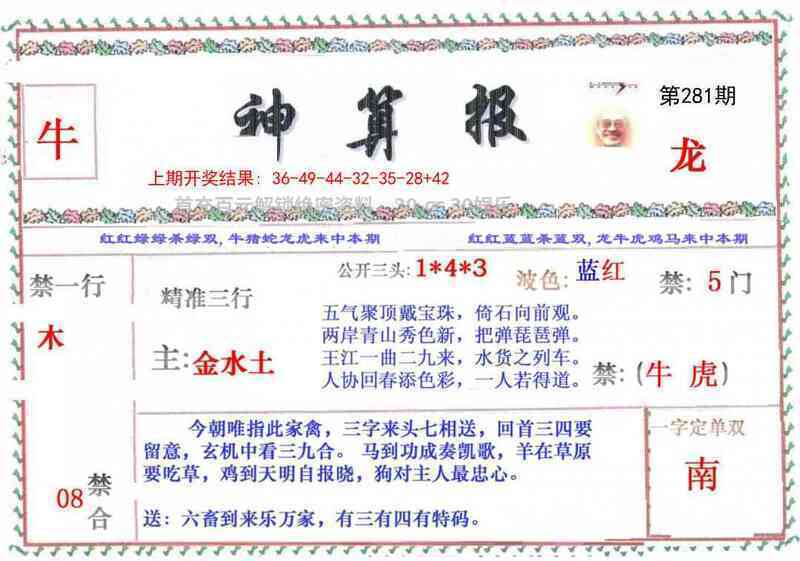 神算报
第281期
牛
龙
上期开奖结果: 36-49-44-32-35-28+42
首充百元解锁绝密资料
红红绿绿杀绿双, 牛猪蛇龙虎来中本期
红红蓝蓝杀蓝双, 龙牛虎鸡马来中本期
禁一行
木
精准三行
主: 金水土
公开三头: 1*4*3
波色: 蓝红
禁: 5门
五气聚顶戴宝珠，倚石向前观。
两岸青山秀色新，把弹琵琶弹。
王江一曲二九来，水货之列车。
人协回春添色彩，一人若得道。
禁:(牛 虎)
08禁合
今朝唯指此家禽，三字来头七相送，回首三四要
留意，玄机中看三九合。 马到功成奏凯歌，羊在草原
要吃草，鸡到天明自报晓，狗对主人最忠心。
送: 六畜到来乐万家，有三有四有特码。
一字定单双
南